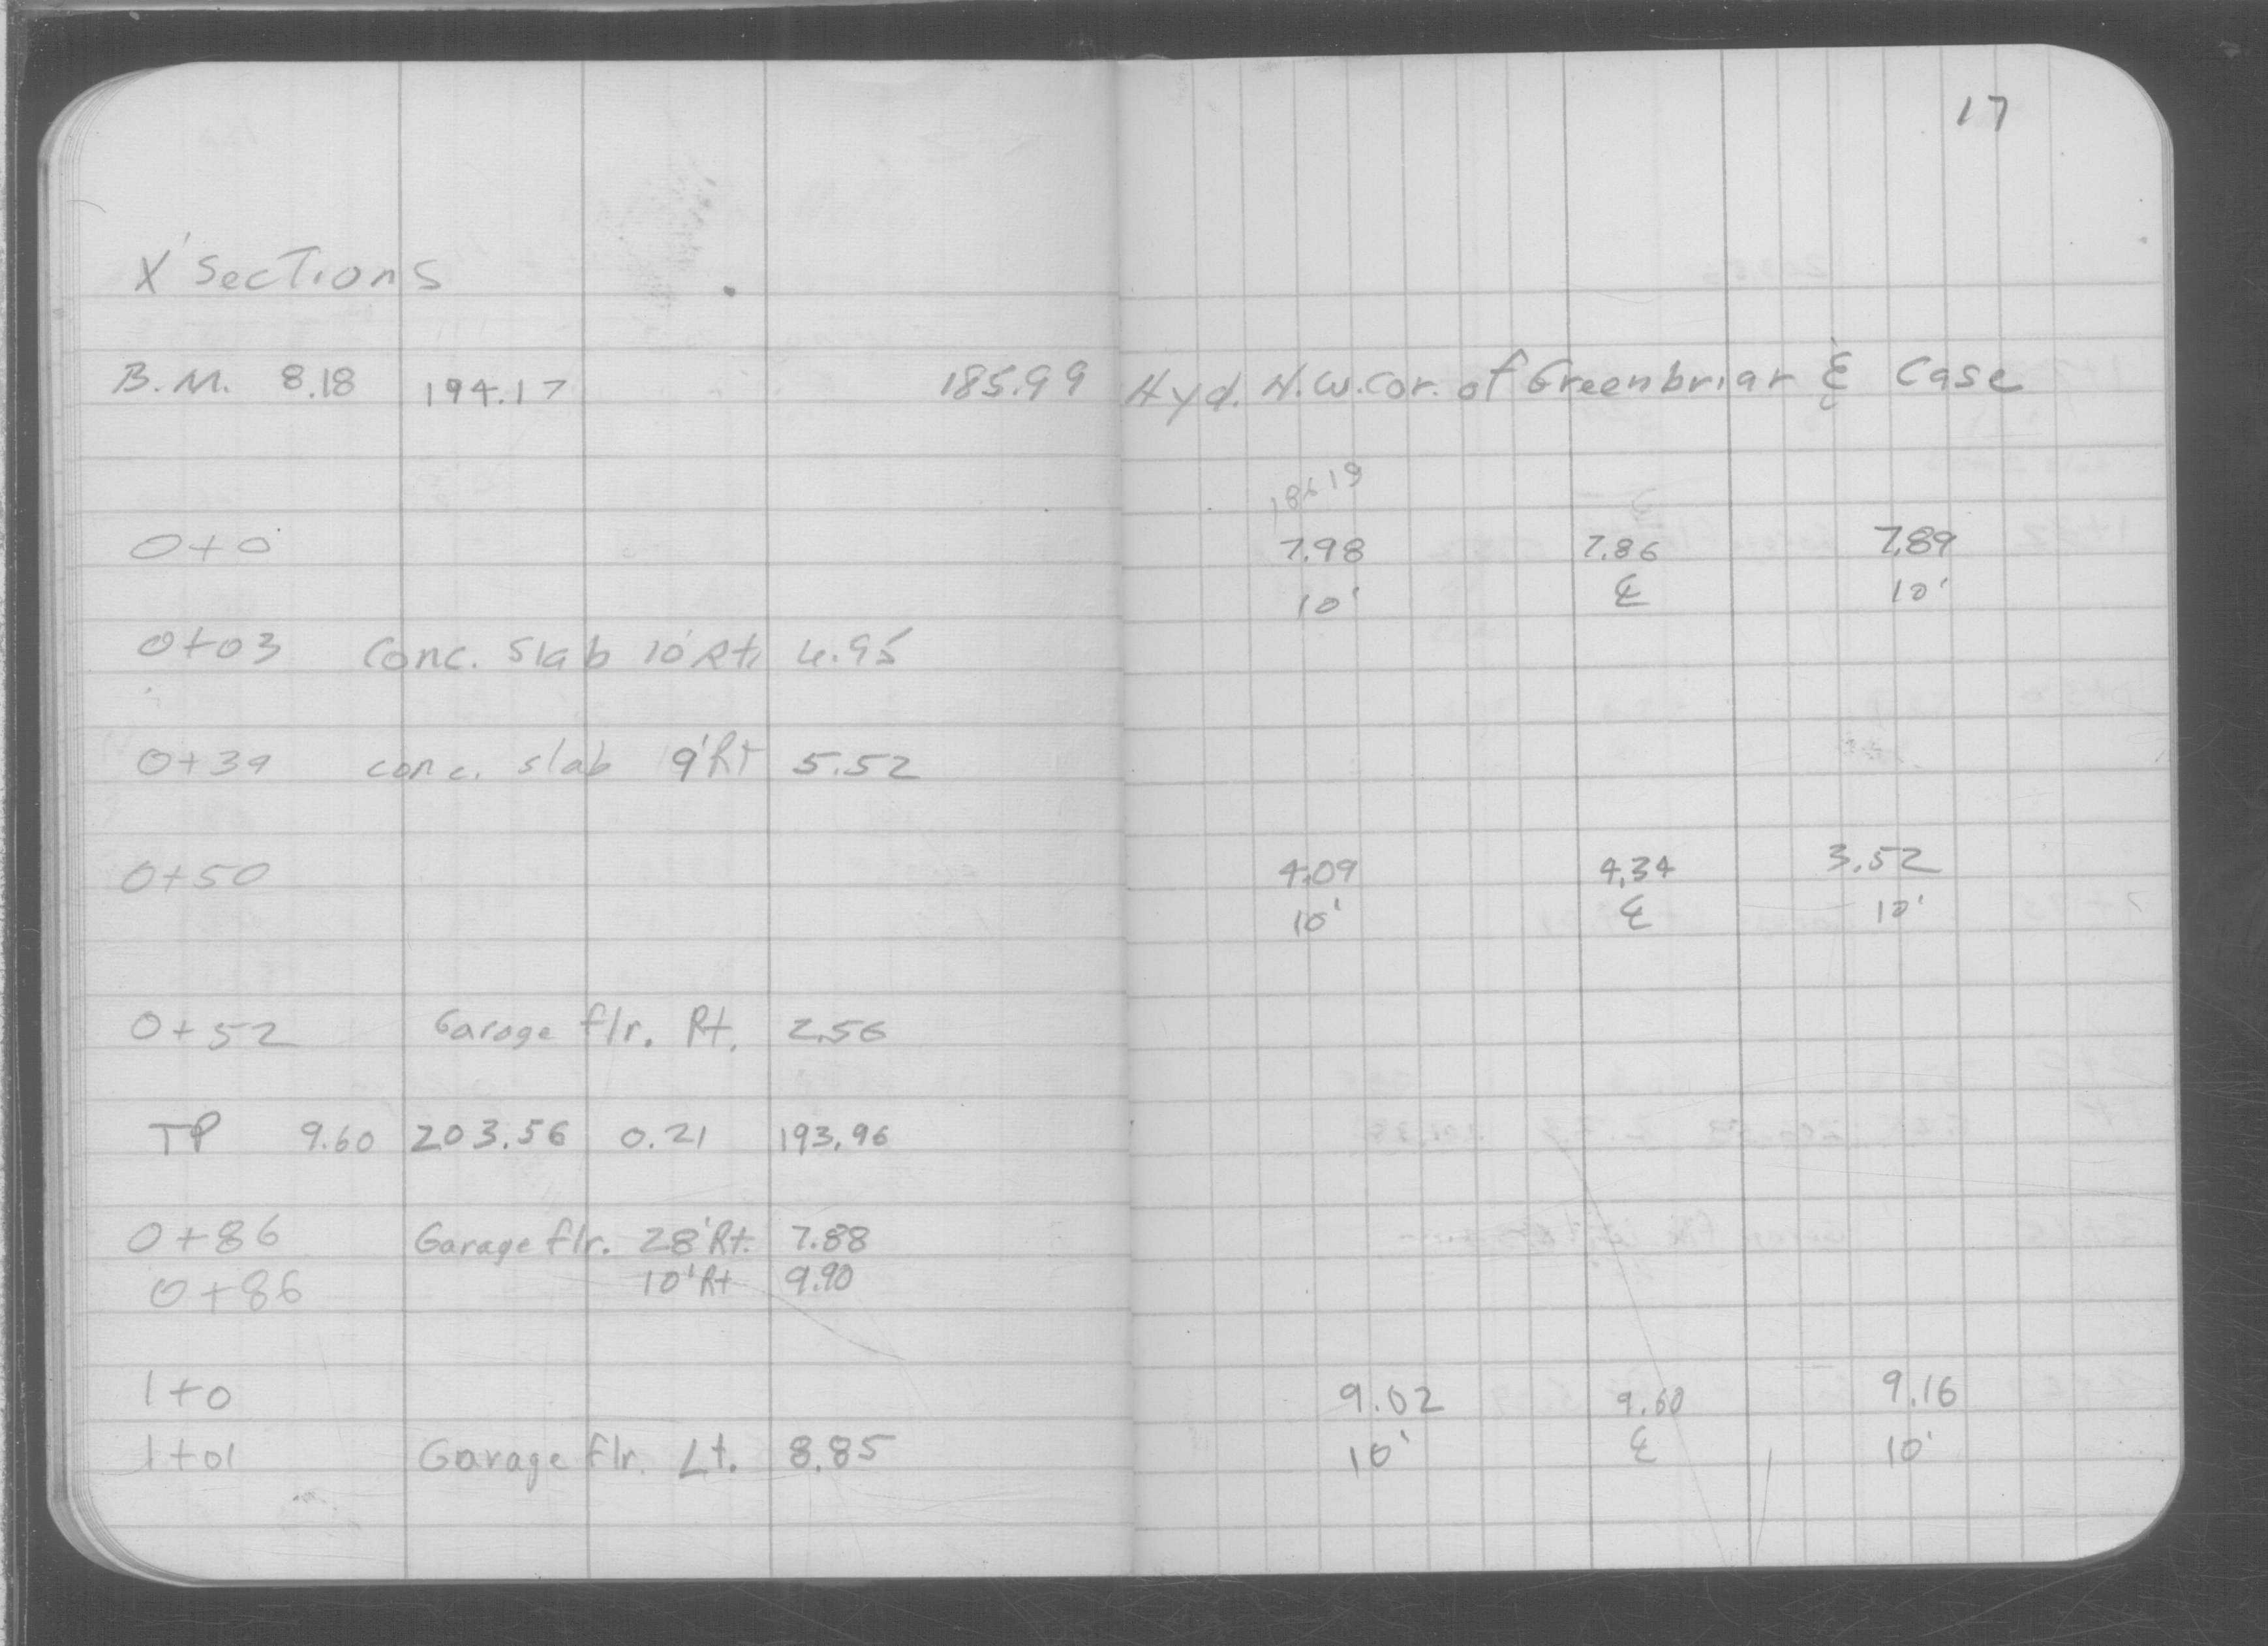 17
X' Sections
B.M. 8.18 194.17 185.99 Hyd. N.W. Cor. of Greenbriar & Case
186.19
0+0 7.98 7.86 7.89
10' ℄ 10'
0+03 Conc. Slab 10' Rt. 4.95
0+39 conc. slab 9' Rt 5.52
0+50 4.09 4.34 3.52
10' ℄ 10'
0+52 Garage flr. Rt. 2.56
TP 9.60 203.56 0.21 193.96
0+86 Garage flr. 28' Rt. 7.88
0+86 10' Rt 9.90
1+0 9.02 9.60 9.16
1+01 Garage flr. Lt. 8.85 10' ℄ 10'